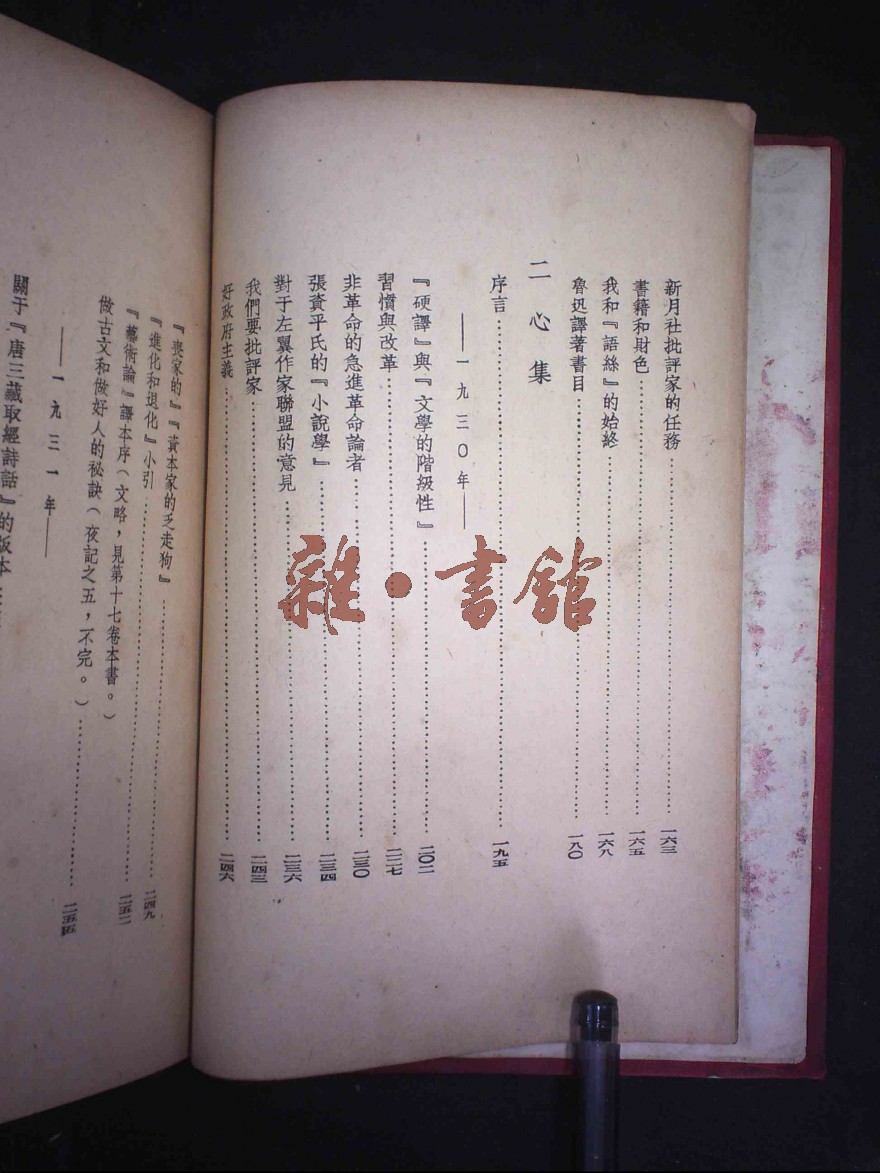 新月社批評家的任務……一六三
書籍和財色……一六五
我和『語絲』的始終……一六八
魯迅譯著書目……一八〇
二心集
序言……一九五
——一九三〇年——
『硬譯』與『文學的階級性』……二〇二
習慣與改革……二二七
非革命的急進革命論者……二三〇
張資平氏的『小說學』……二三四
對于左翼作家聯盟的意見……二三六
我們要批評家……二四三
好政府主義……二四六
『喪家的』『資本家的乏走狗』……二四九
『進化和退化』小引……二五二
『藝術論』譯本序(文略,見第十七卷本書。)
做古文和做好人的秘訣(夜記之五,不完。)……二五五
——一九三一年——
關于『唐三藏取經詩話』的版本……
雜·書館